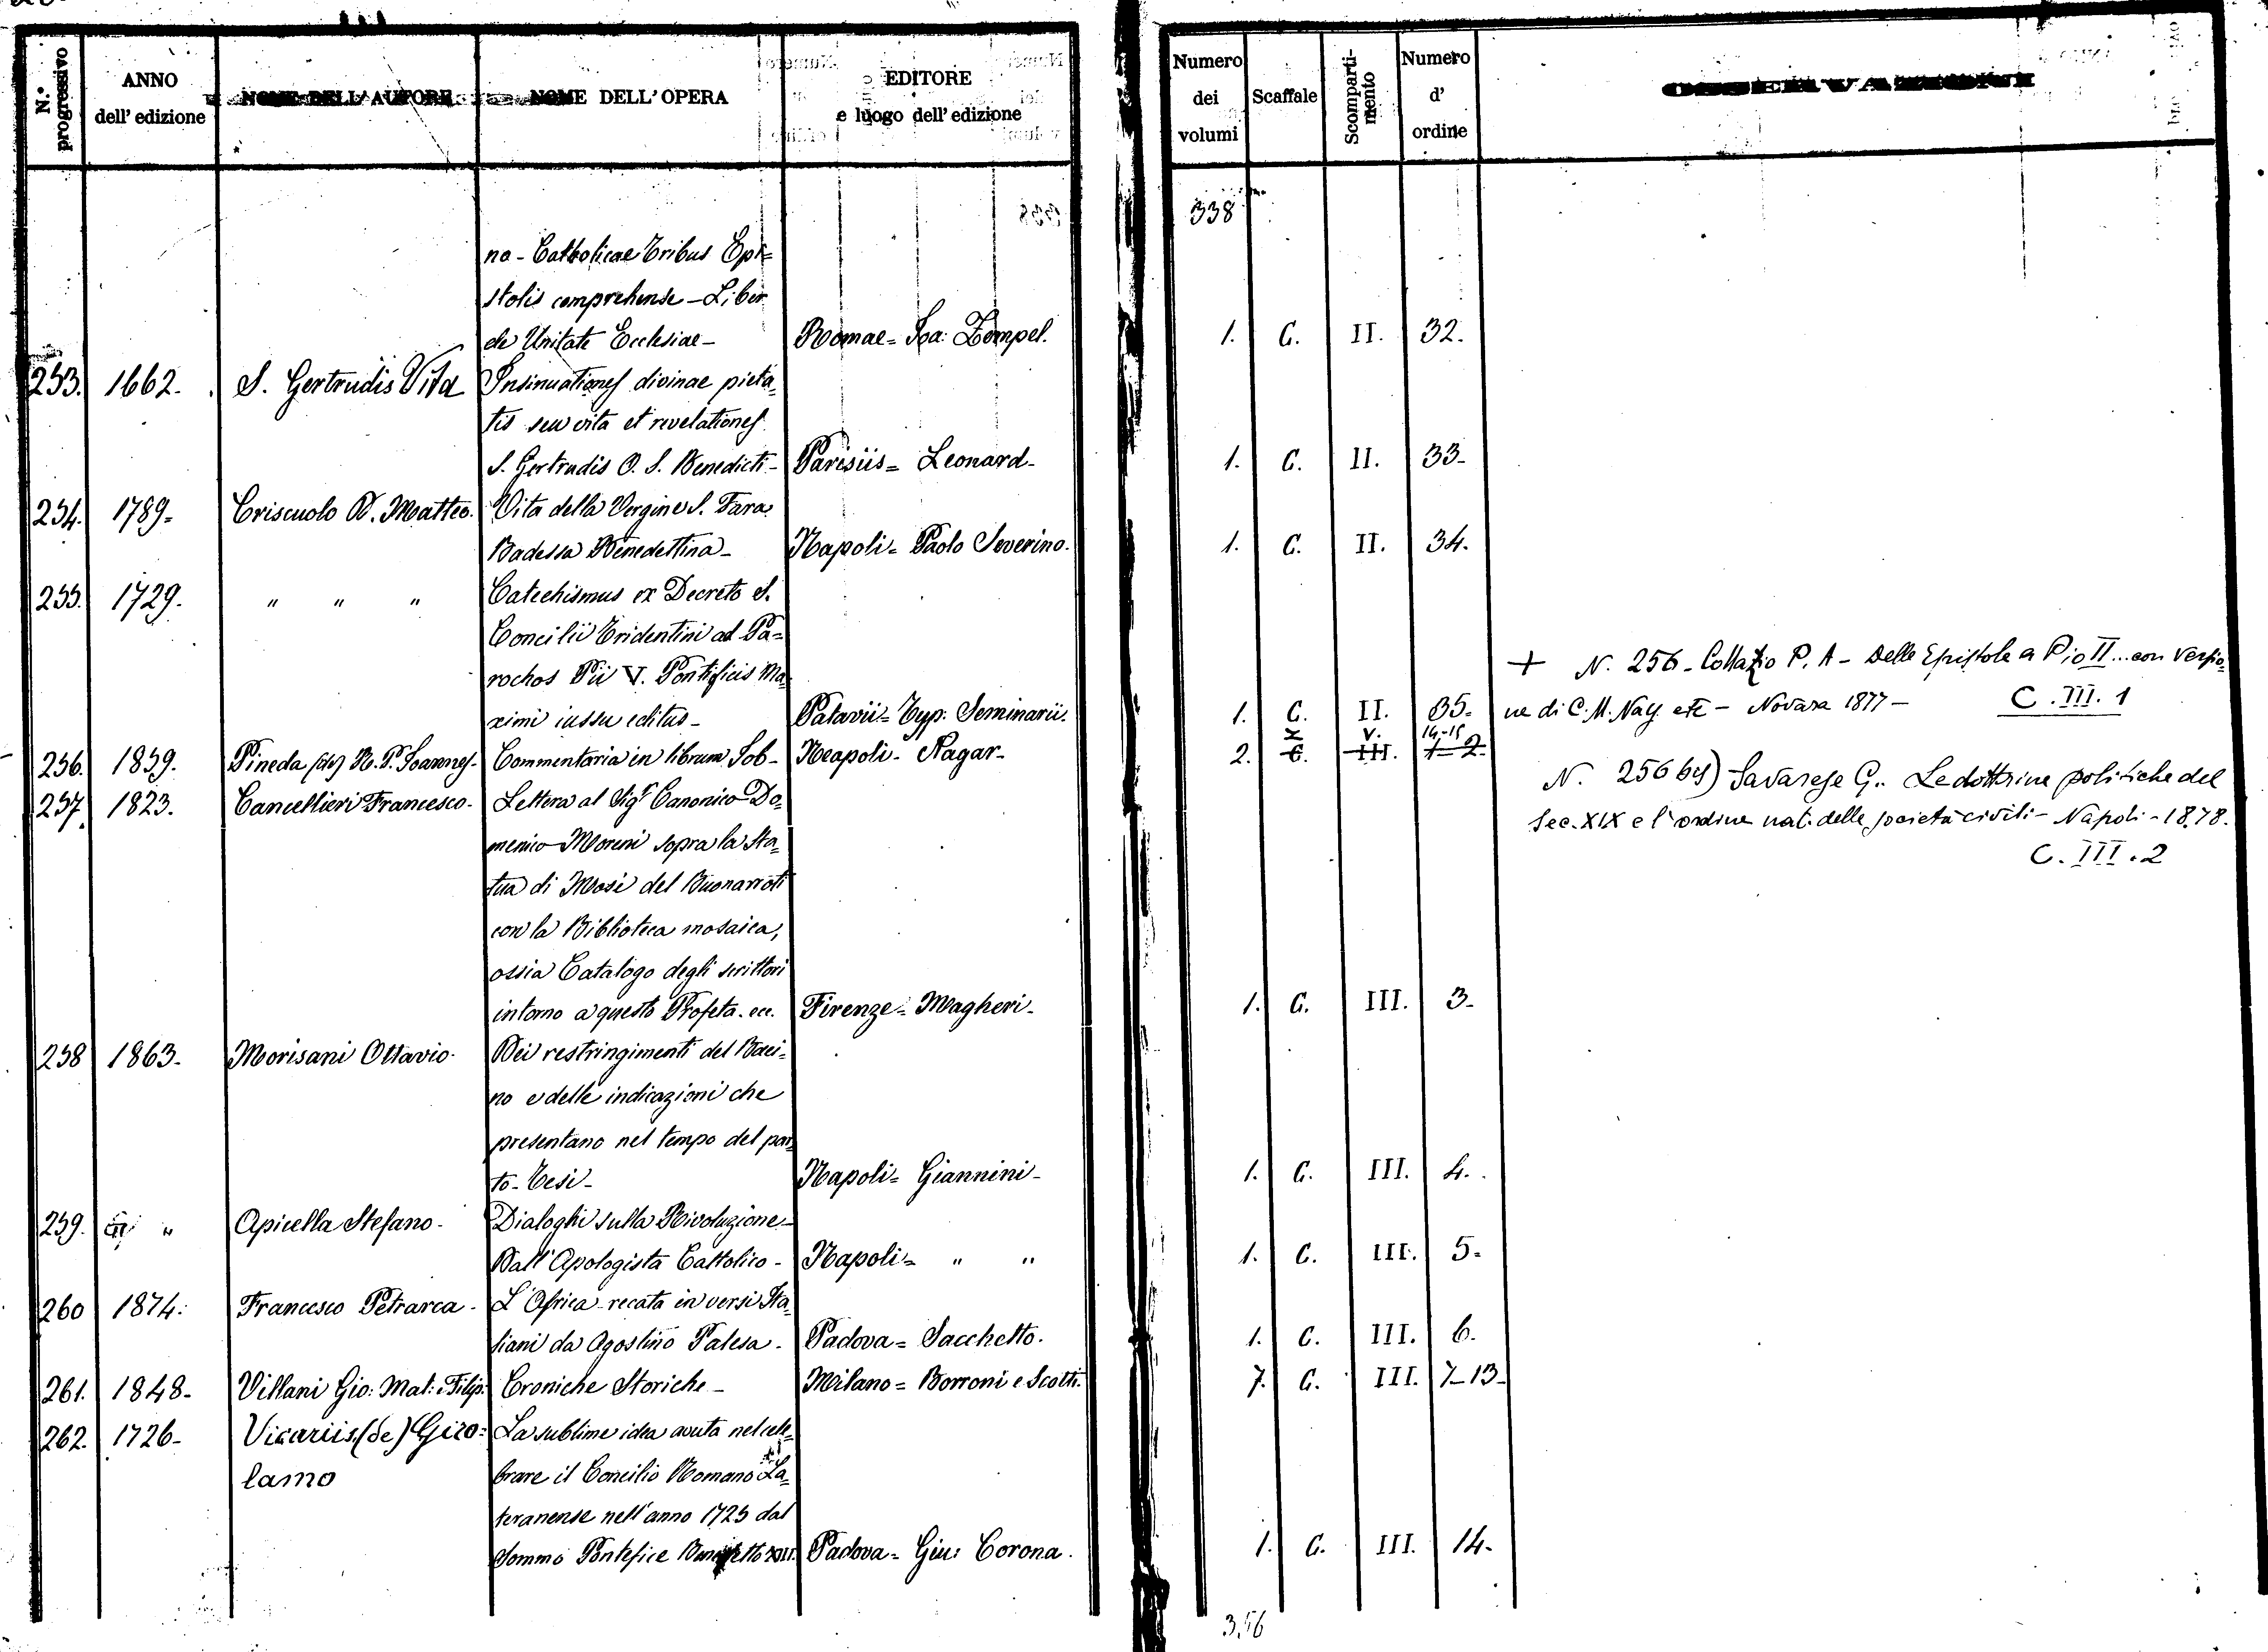 N.° progressivo
ANNO
dell' edizione
NOME DELL' AUTORE
NOME DELL' OPERA
EDITORE
e luogo dell' edizione
Numero
dei
volumi
Scaffale
Scomparti-
mento
Numero
d'
ordine
OSSERVAZIONI
338
no - Catholicae tribus Epi=
stolis comprehense - Liber
de Unitate Ecclesiae - Romae = Zempel. 1. C. II. 32.
253. 1662. S. Gertrudis Vita Insinuationes divinae pieta=
tis seu vita et revelationes
S. Gertrudis O. S. Benedicti - Parisiis = Leonard - 1. C. II. 33 -
254. 1789 = Criscuolo D. Matteo. Vita della Vergine S. Fara
Badessa Benedettina - Napoli = Paolo Severino. 1. C. II. 34.
255. 1729. " " " Catechismus ex Decreto S.
Concilii Tridentini ad Pa=
rochos Pii V. Pontificis Ma=
ximi iussu editus - Patavii = Typ: Seminarii. 1. C. II. 35.
256. 1859. Pineda (de) R. P. Joannes - Commentaria in librum Job - Neapoli - Nagar - 2. C. III. 1-2
X V. 14-15
257. 1823. Cancellieri Francesco - Lettera al Sigr Canonico Do=
menico Moreni sopra la Sta=
tua di Mosè del Buonarroti
con la Biblioteca mosaica,
ossia Catalogo degli scrittori
intorno a questo Profeta. ecc. Firenze = Magheri - 1. C. III. 3 -
258 1863 - Morisani Ottavio - Dei restringimenti del Baci=
no e delle indicazioni che
presentano nel tempo del par=
to - Tesi - Napoli = Giannini - 1. C. III. 4.
259. " Apicella Stefano - Dialoghi sulla Rivoluzione -
Dall' Apologista Cattolico - Napoli = " " 1. C. III. 5 -
260 1874. Francesco Petrarca - L'Africa - recata in versi Ita=
liani da Agostino Palesa - Padova = Sacchetto. 1. C. III. 6.
261. 1848 - Villani Gio: Mat: e Filip: Croniche Storiche - Milano = Borroni e Scotti. 7. C. III. 7-13 -
262. 1726 - Vicariis (de) Giro= La sublime idea avuta nel cele=
lamo brare il Concilio Romano La=
teranense nell'anno 1725 dal
Sommo Pontefice Benedetto XIII. Padova = Giu: Corona. 1. C. III. 14 -
+ N. 256 - Collazio P. A - Delle Epistole a Pio II ... con versio=
ne di C. M. Nay. etc - Novara 1877 - C. III. 1
N. 256 bis) Savarese G.. Le dottrine politiche del
Sec. XIX e l'ordine nat. delle società civili - Napoli - 1878.
C. III. 2
356